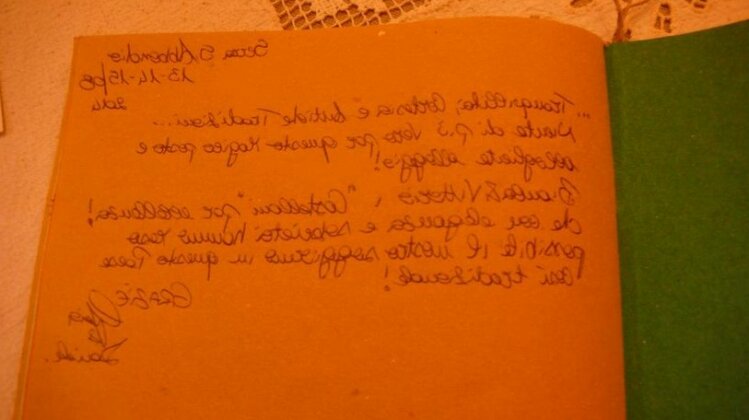 Serra S. Abbondio
13-14-15/08
2014
"... Tranquillità, Cortesia e antiche Tradizioni...
Niente di più vero per questo Magico posto e
accogliente alloggio!
& Vittorio, "Castellani" per eccellenza!
che con eleganza e sobrietà hanno reso
possibile il nostro soggiorno in questo Paese
così tradizionale!
GRAZIE
Davide.